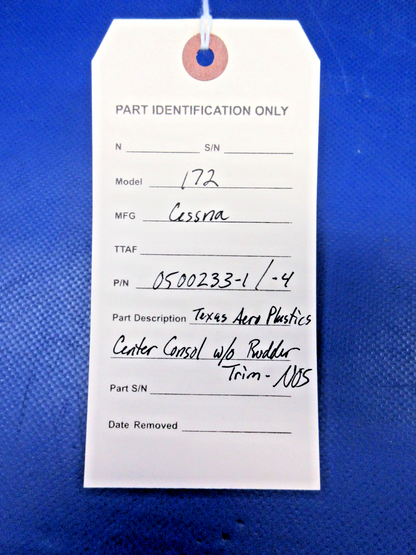 PART IDENTIFICATION ONLY
N S/N
Model 172
MFG Cessna
TTAF
P/N 0500233-1/-4
Part Description Texas Aero Plastics
Center Consol w/o Rudder
Trim - NOS
Part S/N
Date Removed